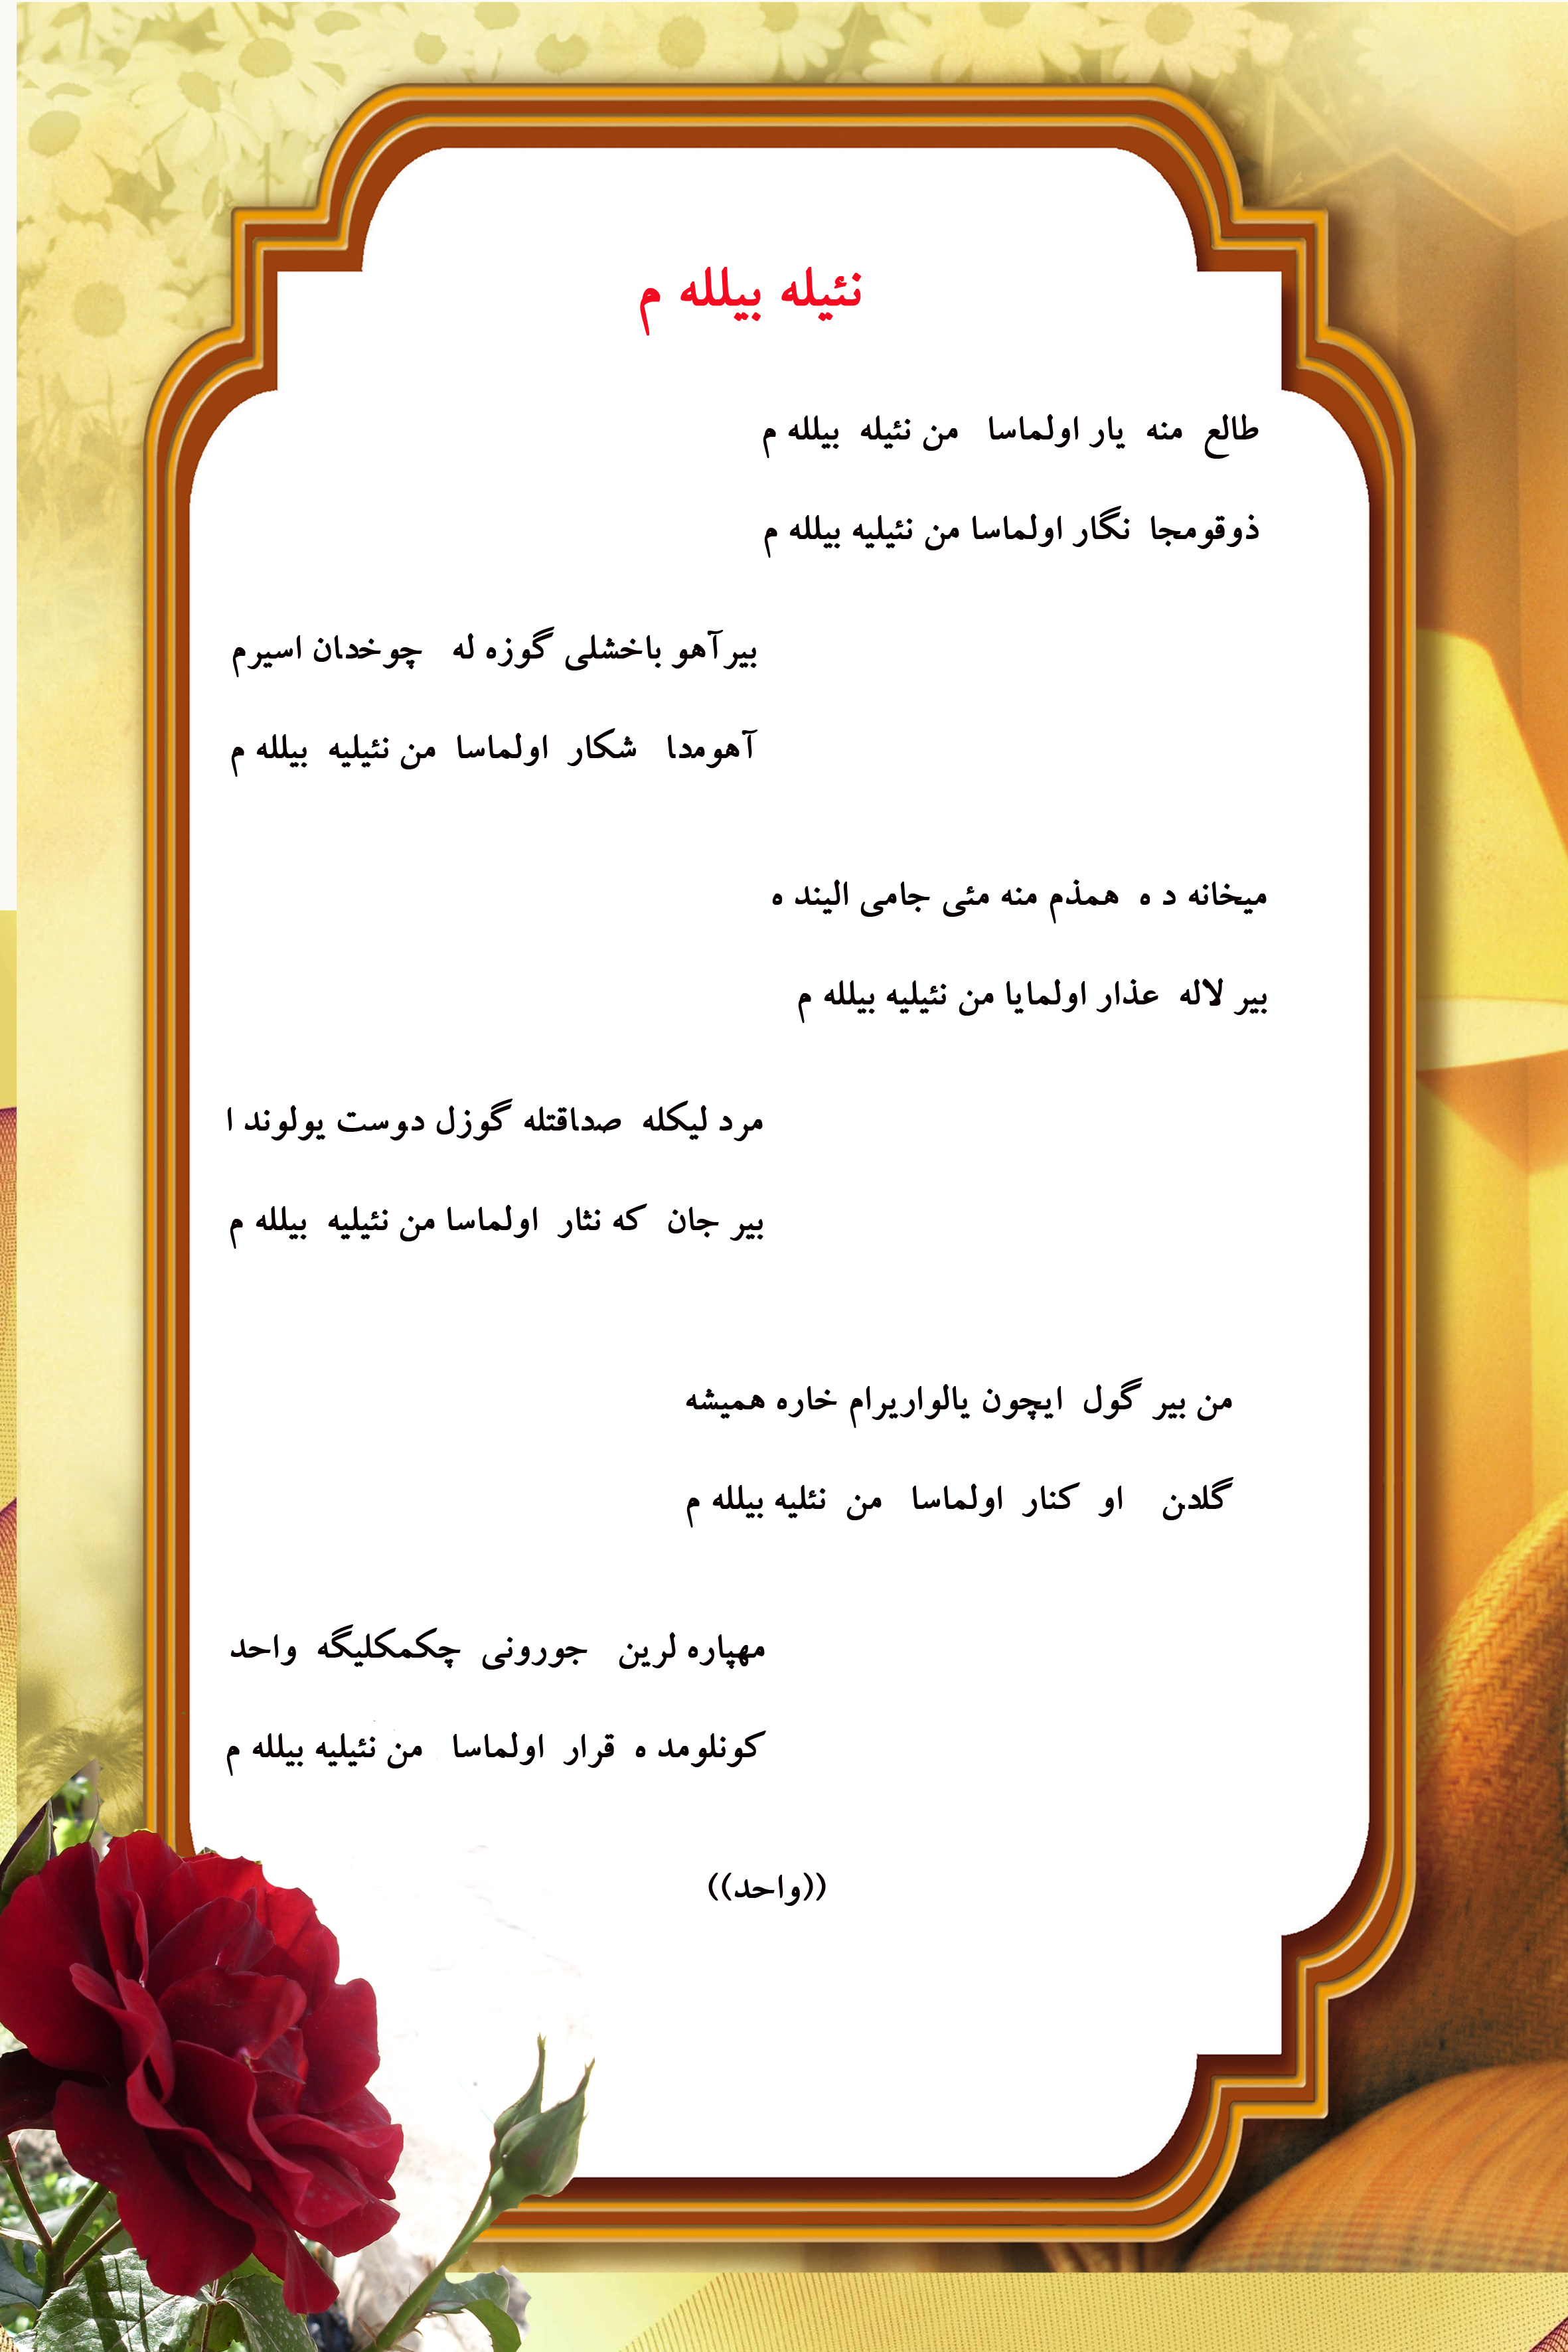 نئیله بیلله م
طالع منه یار اولماسا من نئیله بیلله م
ذوقومجا نگار اولماسا من نئیلیه بیلله م
بیرآهو باخشلی گوزه له چوخدان اسیرم
آهومدا شکار اولماسا من نئیلیه بیلله م
میخانه د ه همذم منه مئی جامی الیند ه
بیر لاله عذار اولمایا من نئیلیه بیلله م
مرد لیکله صداقتله گوزل دوست یولوند ا
بیر جان که نثار اولماسا من نئیلیه بیلله م
من بیر گول ایچون یالواریرام خاره همیشه
گلدن او کنار اولماسا من نئلیه بیلله م
مهپاره لرین جورونی چکمکلیگه واحد
کونلومد ه قرار اولماسا من نئیلیه بیلله م
((واحد))